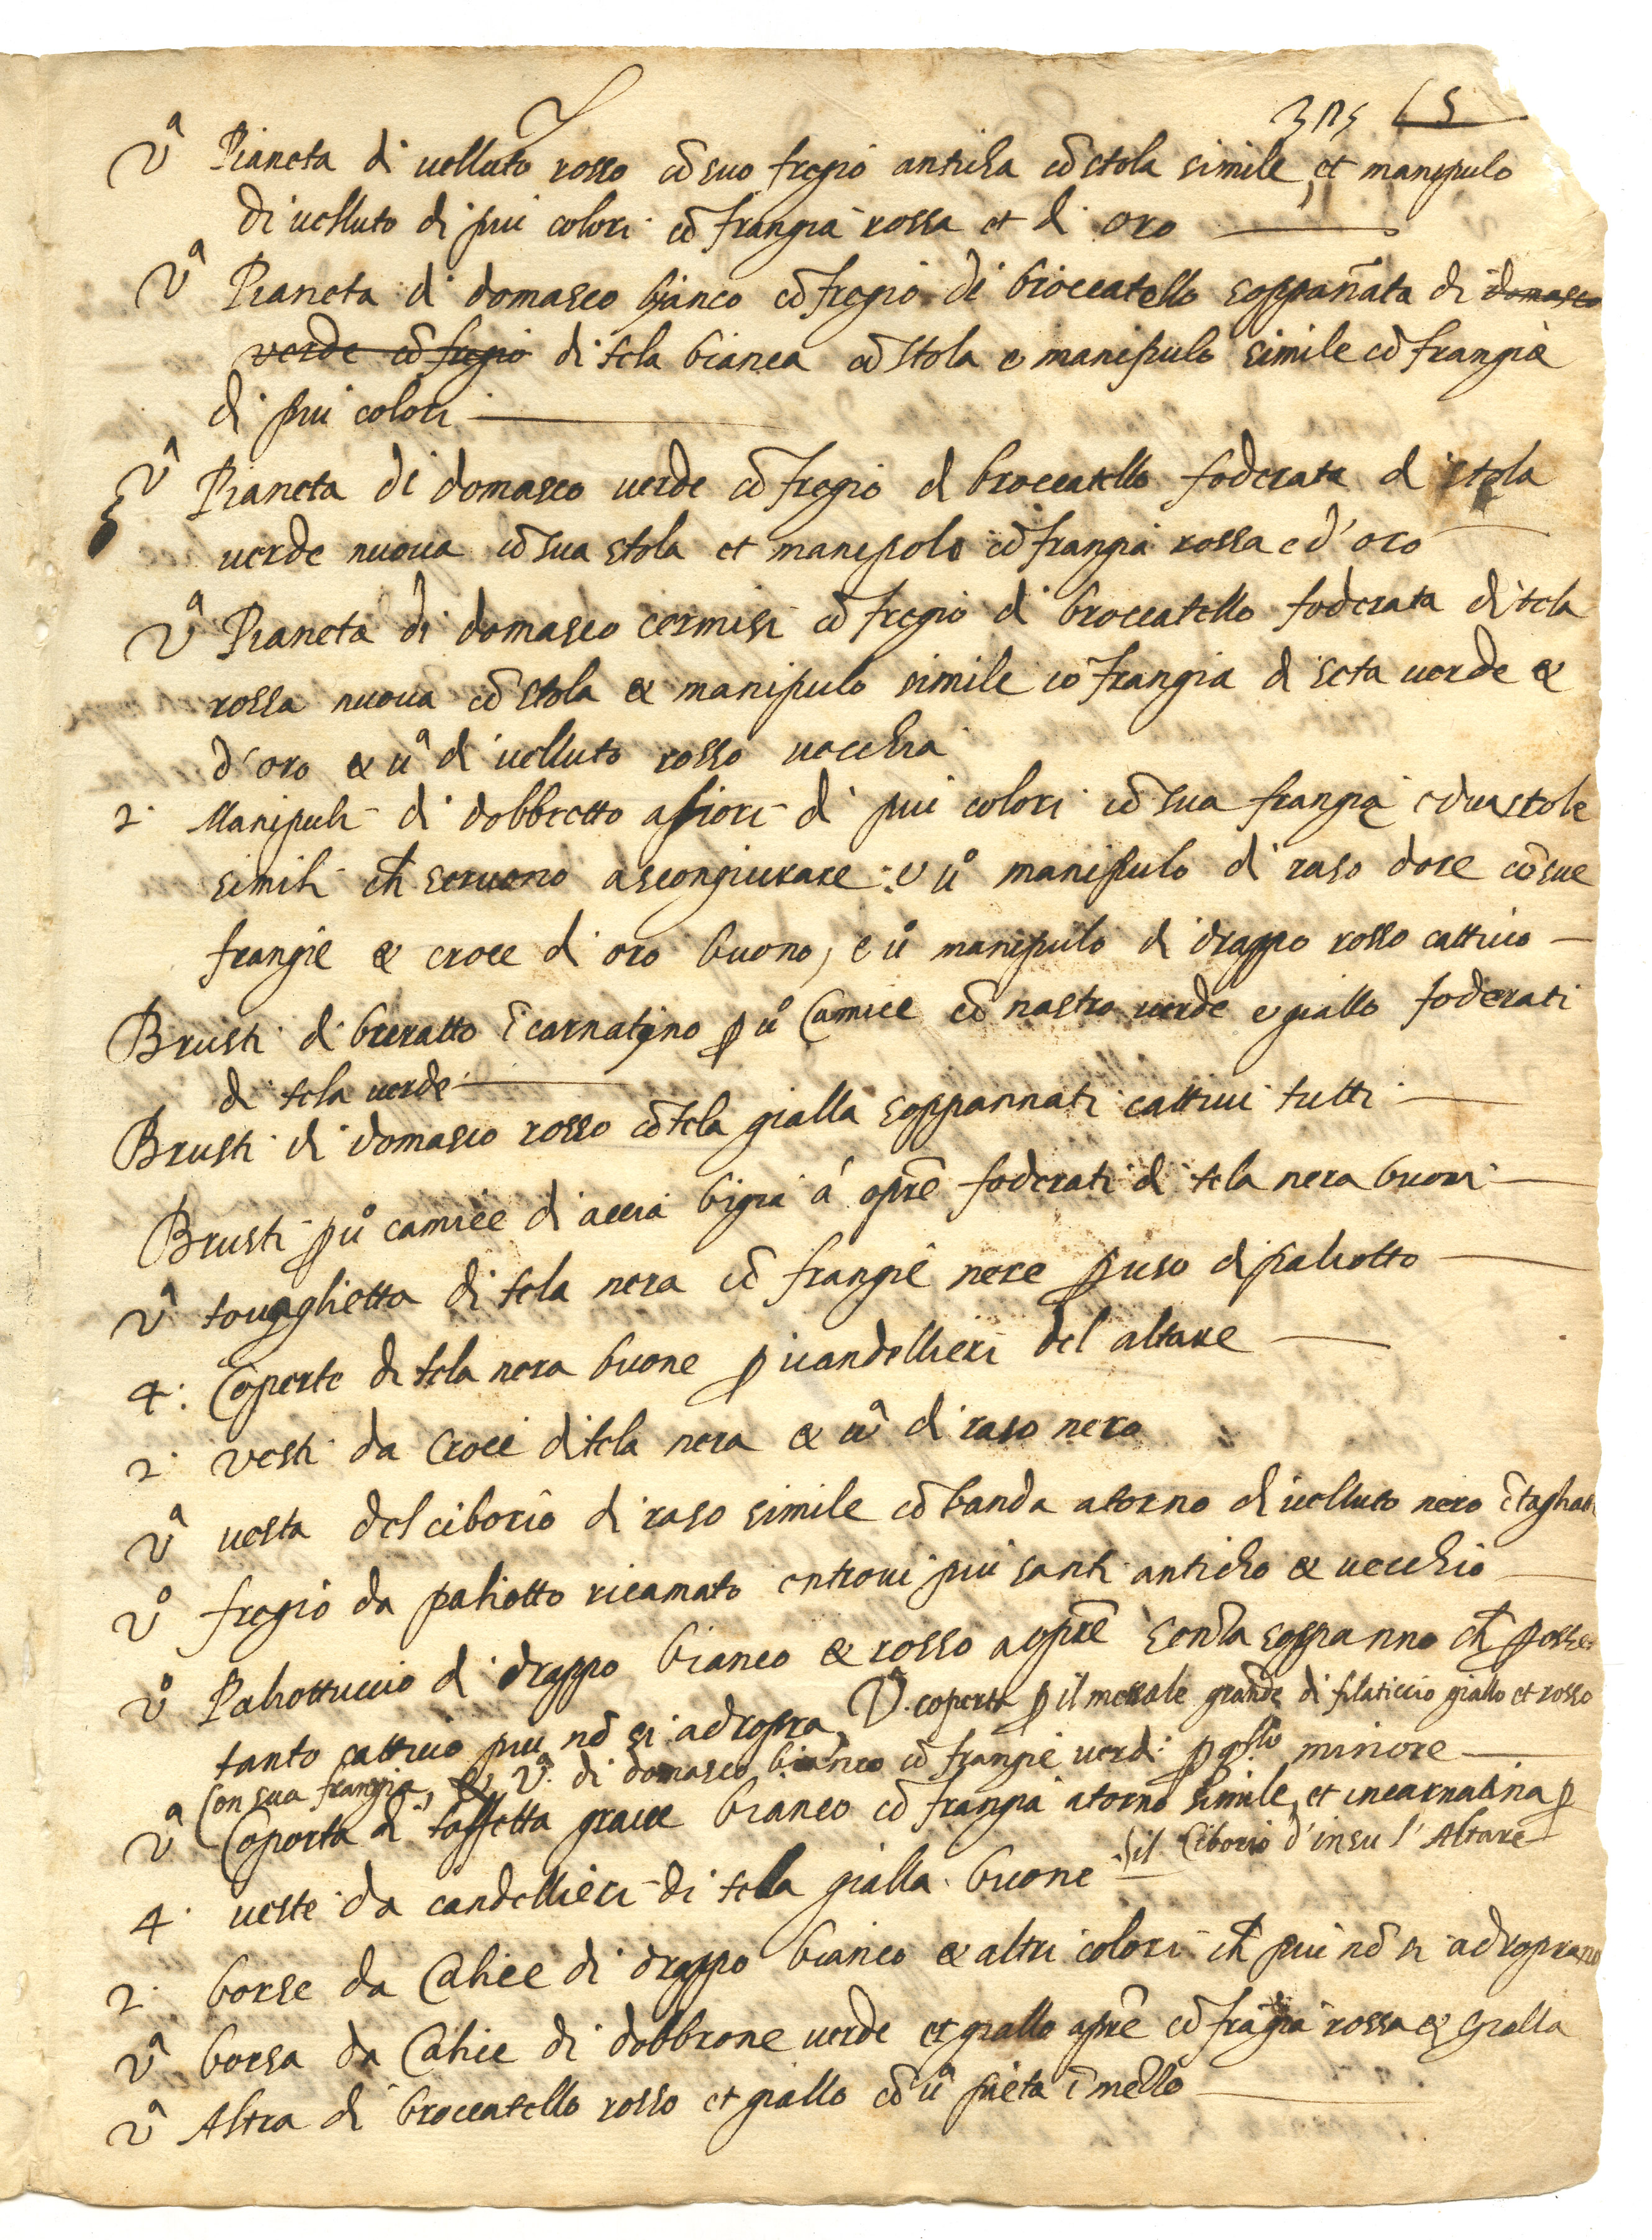 65
vª Pianeta di uelluto rosso cō suo fregio anticha cō stola simile, et manipulo
di uelluto di piu colori cō frangia rossa et di oro
vª Pianeta di domasco bianco cō fregio di broccatello soppañata di domasco
verde cō fregio di tela bianca cō stola e manipulo simile cō frangia
di piu colori
vª Pianeta di domasco uerde cō fregio di broccatello foderata di tela
uerde nuoua cō sua stola et manipolo cō frangia rossa e d'oro
vª Pianeta di domasco cermisi cō fregio di broccatello foderata di tela
rossa nuoua cō stola & manipulo simile cō frangia di seta uerde &
d'oro & uª di uelluto rosso uecchia
2. Manipuli di dobbretto a fiori di piu colori cō sua frangia e dua stole
simili ch̄ seruono a scongiurare: e uº manipulo di raso dore cō sue
frangie & croce di oro buono, e uº manipulo di drappo rosso cattiuo
Brusti di buratto īcarnatino p uº Camice cō nastro uerde e giallo foderati
di tela uerde
Brusti di domasco rosso cō tela gialla soppannati cattiui tutti
Brusti p uº camice di accia bigia á opr̄e foderati di tela nera buoni
vª touaglietta di tela nera cō frangie nere p uso di paliotto
4. Coperte di tela nera buone p i candellieri del altare
2. vesti da Croce di tela nera & uª di raso nero
vª uesta del ciborio di raso simile cō banda atorno di uelluto nero ītagliat
vº fregio da paliotto ricamato entroui piu santi anticho & uecchio
vº Paliottuccio di drappo bianco & rosso a opr̄e senza soppanno ch̄ p esse
tanto cattiuo piu nō si adropra, Vª. coperta p il messale grande di filaticcio giallo et rosso
Con sua frangia, & Vª. di domasco bianco cō frangie uerdi p qllo minore
vª Coperta di taffetta graue bianco cō frangia atorno simile, et incarnatina p
il Ciborio d'in su l'Altare
4. ueste da candellieri di tela gialla buone
2. borse da Calice di drappo bianco & altri colori ch̄ piu nō si adroprano
vª borsa da Calice di dobbrone uerde et giallo a opr̄e cō frāgia rossa & gialla
vª Altra di broccatello rosso et giallo cō uª pieta ī mezzo